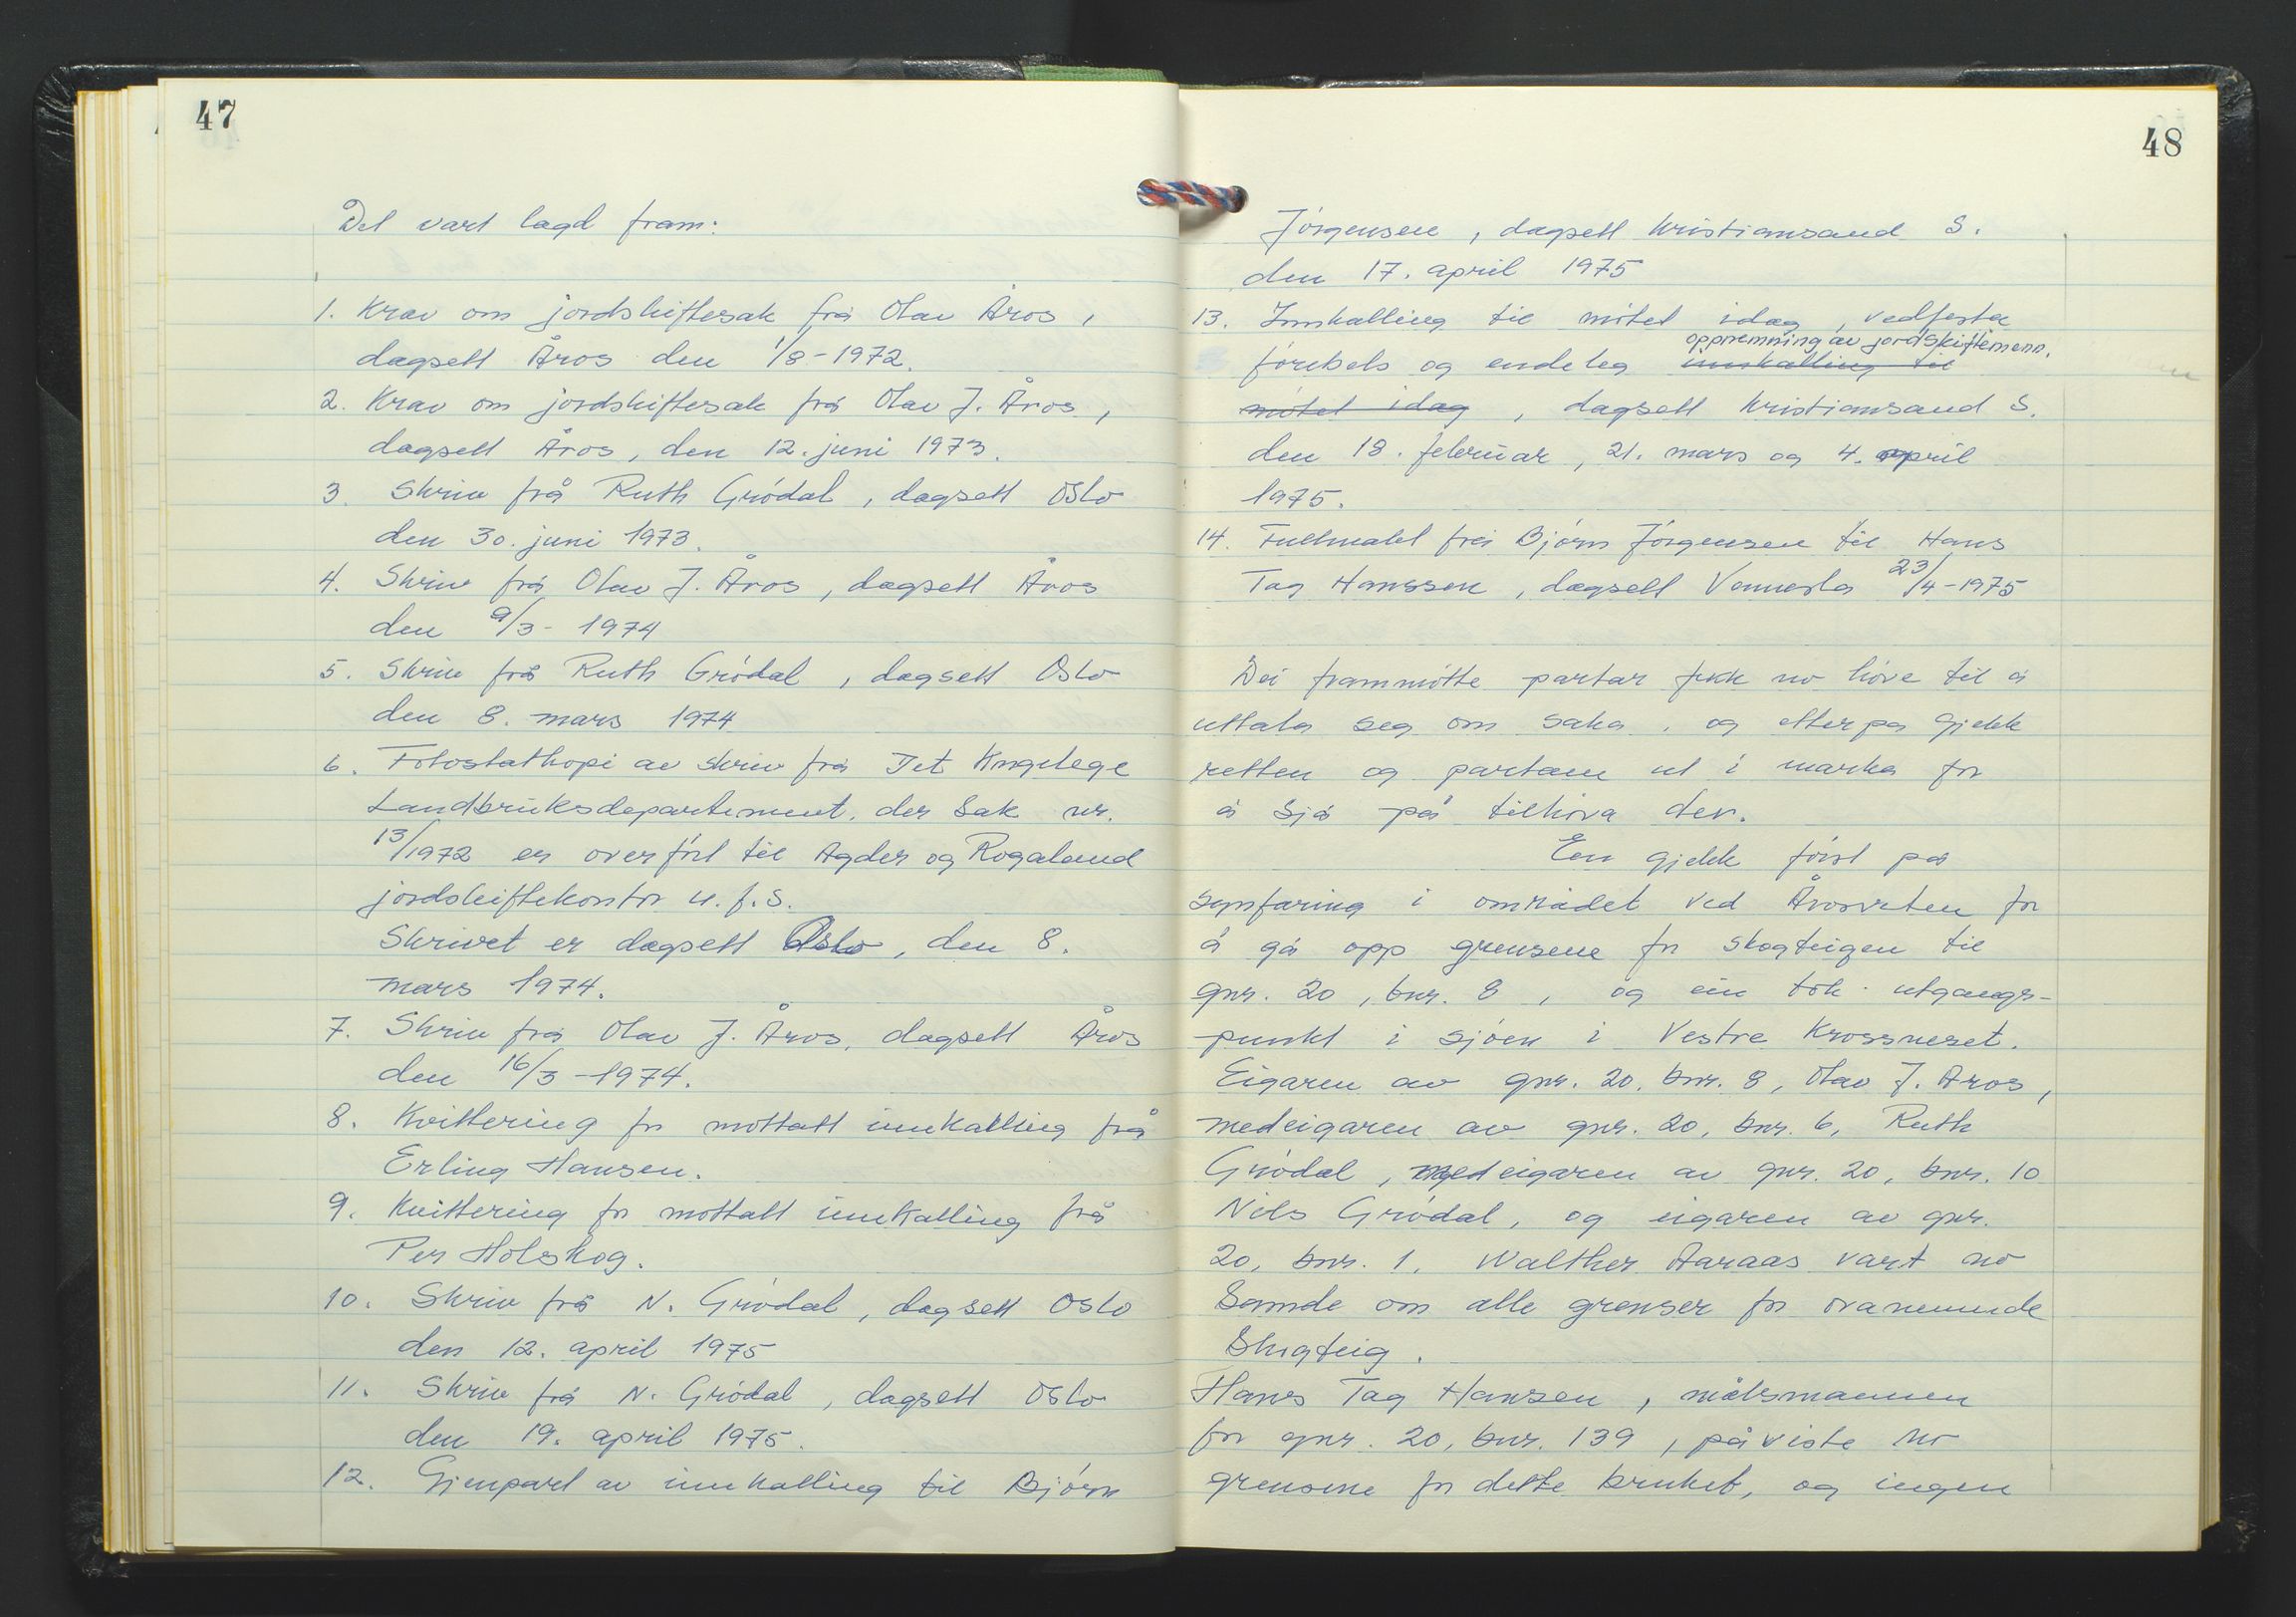 47
Det vart lagd fram:
1. Krav om jordskiftesak frå Olav Åros,
dagsett Åros den 1/8-1972.
2. Krav om jordskiftesak frå Olav J. Åros,
dagsett Åros, den 12. juni 1973.
3. Skriv frå Ruth Grödal, dagsett Oslo
den 30. juni 1973.
4. Skriv frå Olav J. Åros, dagsett Åros
den 9/3- 1974
5. Skriv frå Ruth Grödal, dagsett Oslo
den 8. mars 1974
6. Fotostatkopi av skriv frå Det Kngelege
Landbruksdepartement, der sak nr.
13/1972 er overfört til Agder og Rogaland
jordskiftekontor u.f.s.
Skrivet er dagsett Oslo, den 8.
mars 1974.
7. Skriv frå Olav J. Åros, dagsett Åros
den 16/3-1974.
8. Kvittering for mottatt innkalling frå
Erling Hansen.
9. Kvittering for mottatt innkalling frå
Per Holskog.
10. Skriv frå N. Grödal, dagsett Oslo
den 12. april 1975
11. Skriv frå N. Grödal, dagsett Oslo
den 19. april 1975.
12. Gjenpart av innkalling til Björn
48
Jörgensen, dagsett Kristiansand S.
den 17. april 1975
13. Innkalling til mötet idag, vedlagte
oppnemning av jordskiftemenn.
förebels og endeleg innkalling til
mötet idag, dagsett Kristiansand S.
den 18. februar, 21. mars og 4. april
1975.
14. Fullmakt frå Björn Jörgensen til Hans
Tag Hanssen, dagsett Vennesla 23/4-1975
Dei frammötte partar fekk no höve til å
uttala seg om saka, og etterpå gjekk
retten og partane ut i marka for
å sjå på tilhöva der.
Ein gjekk först på
synfaring i området ved Årosveten for
å gå opp grensene for skogteigen til
gnr. 20, bnr. 8, og ein tok utgangs-
punkt i sjöen i Vestre Krossneset.
Eigaren av gnr. 20, bnr. 8, Olav J. Aros,
medeigaren av gnr. 20, bnr. 6, Ruth
Grödal, medeigaren av gnr. 20, bnr. 10
Nils Grödal, og eigaren av gnr.
20, bnr. 1, Walther Aaraas vart no
samde om alle grenser for ovanemnde
skogteig.
Hans Tag Hansen, målsmannen
for gnr. 20, bnr. 139, påviste no
grensene for dette bruket, og ingen